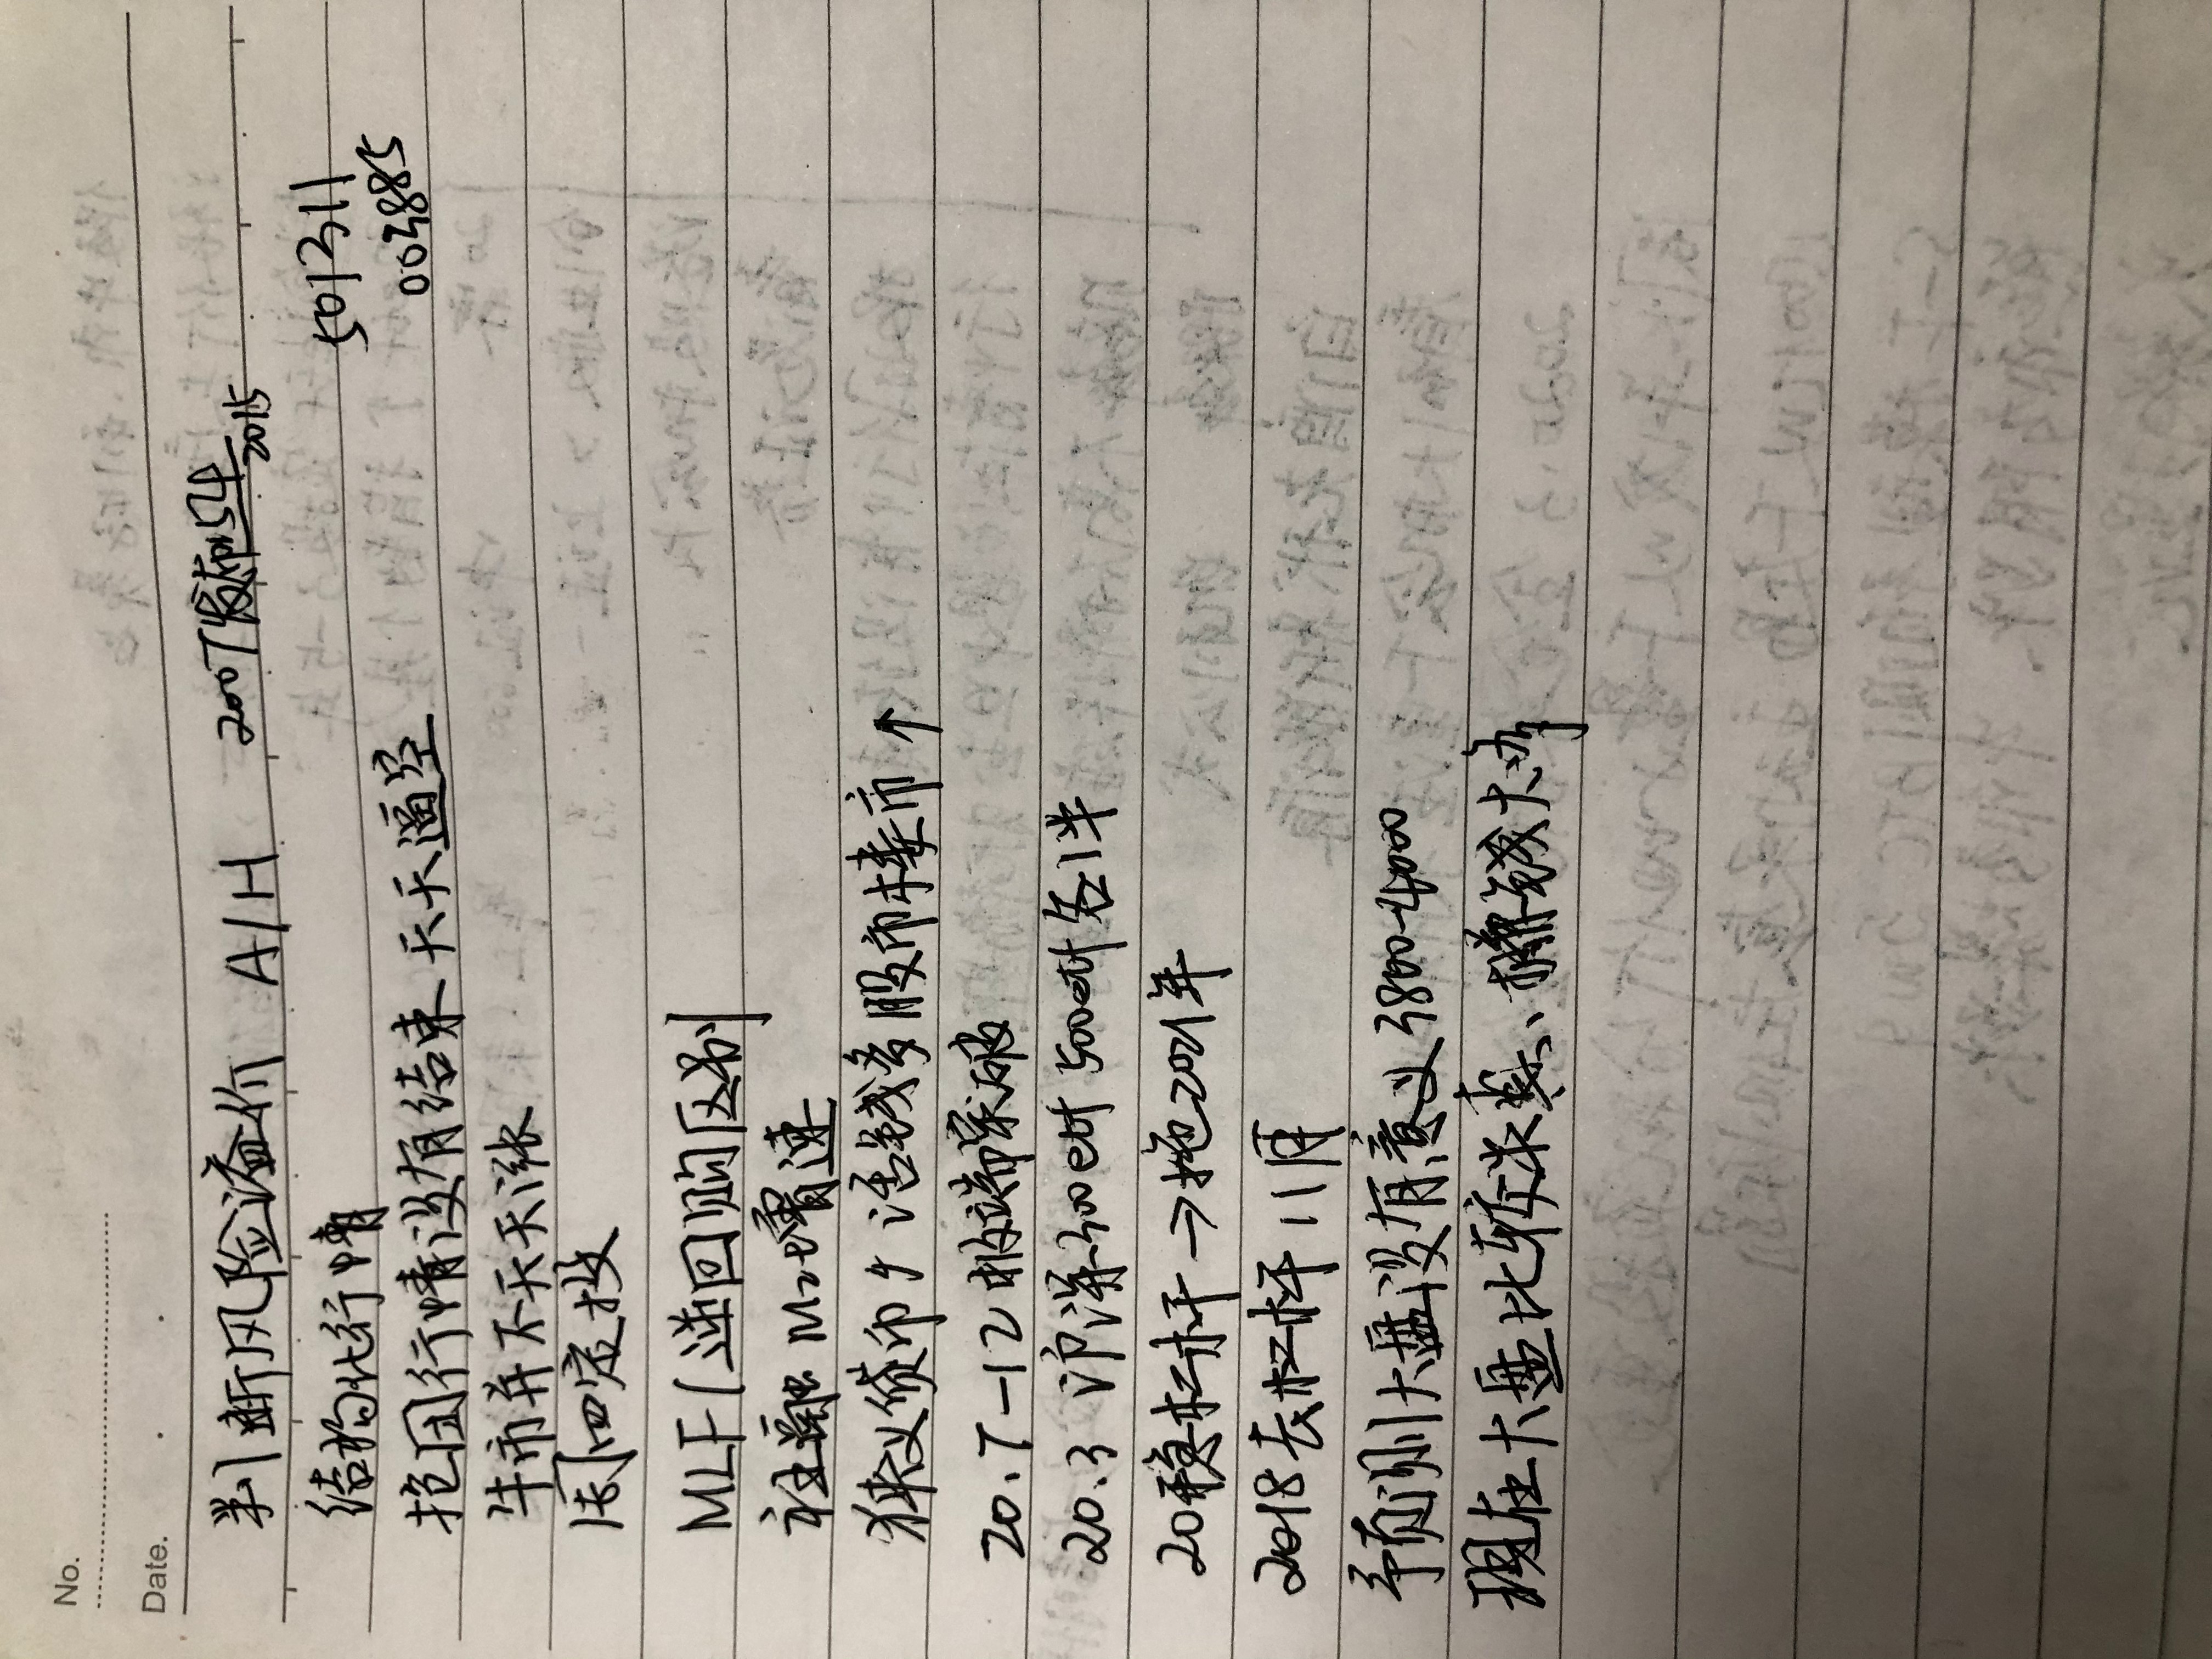 No.
Date.
判断风险溢价 A/H 2007发布154 2015
结构化行情 501311
抱团行情没有结束 天天逼空 003885
牛市并不天天涨
周四定投
MLF/逆回购区别
社融 M2增速
狭义货币↑ 活钱多股市楼市↑
20.7-12极端突破
20.3 沪深300etf 500etf各1半
20稳杠杆→拖2021年
2018去杠杆 11月
予页测大盘没有意义3800-4000
现在大盘比较 赚钱大